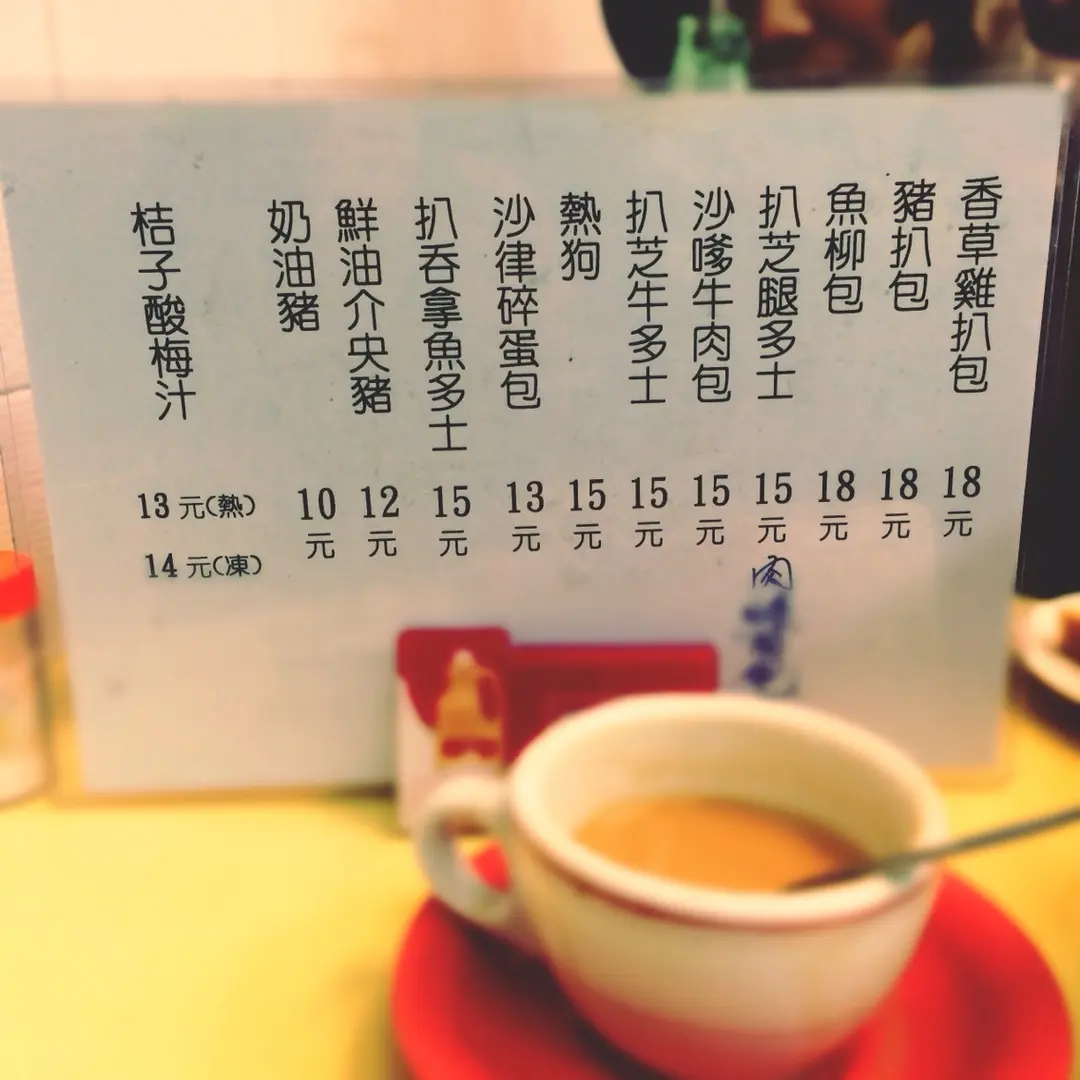 香草雞扒包 18元
豬扒包 18元
魚柳包 18元
扒芝腿多士 15元
肉
沙嗲牛肉包 15元
扒芝牛多士 15元
熱狗 15元
沙律碎蛋包 13元
扒吞拿魚多士 15元
鮮油介央豬 12元
奶油豬 10元
桔子酸梅汁 13元(熱)
14元(凍)